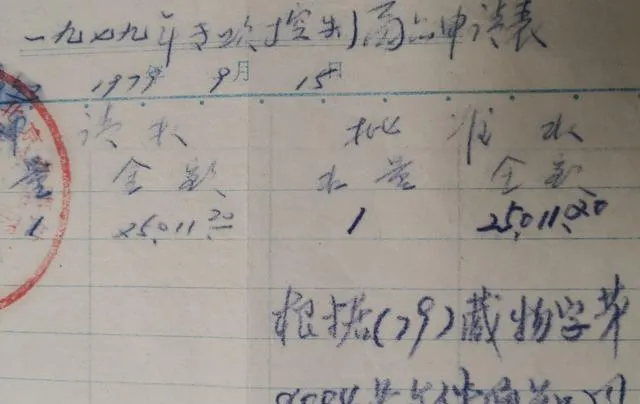 一九七九年专项控制商品申请表
1979年 9月 15日
请求 批准水
量 金额 水量 金额
1 25,011.20 1 25,011.20
根据(79)藏物字第